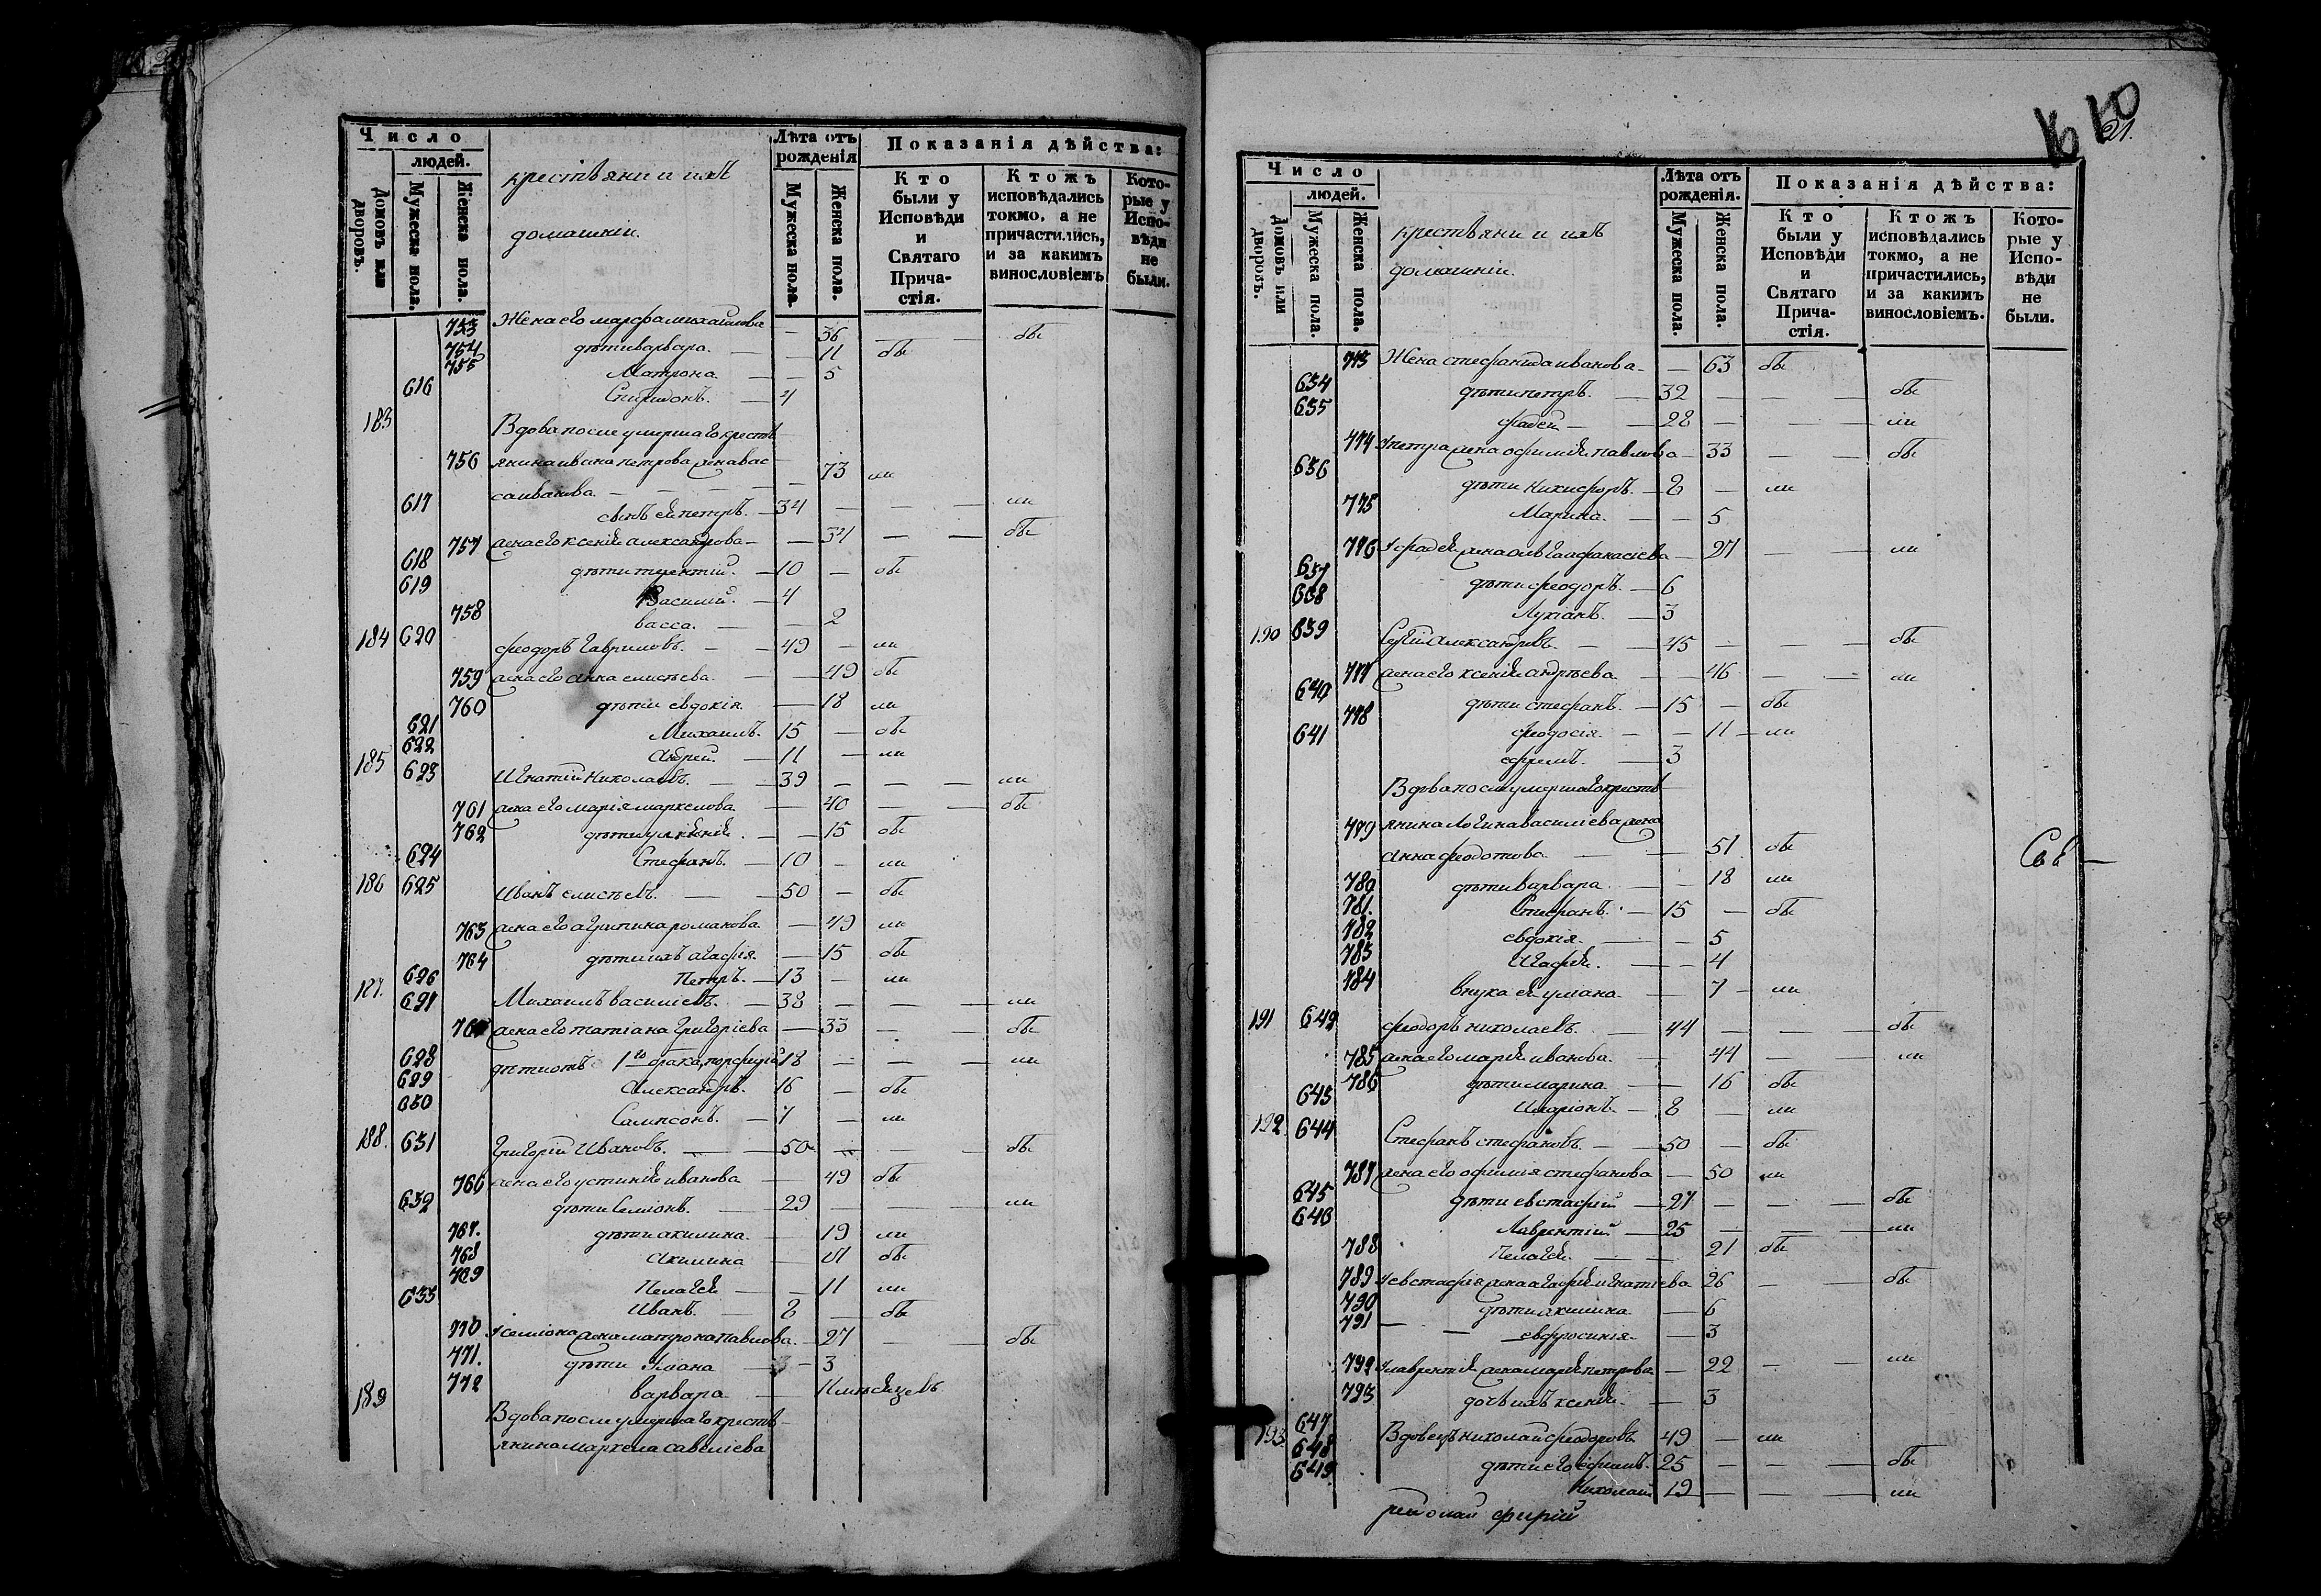 Число
людей.
Домовъ или дворовъ.
Мужеска пола.
Женска пола.
крестьяни и ихъ
домашнiи.
Лѣта отъ рожденія
Мужеска пола.
Женска пола.
Показанія дѣйства:
Кто были у Исповѣди и Святаго Прича-стія.
Ктожъ исповѣдались токмо, а не причастились, и за какимъ винословіемъ
Кото-рые у Испо-вѣди не были.
753 Жена его марфа михайлова — 36 — — обе
754 дѣти варвара. — — 11 обе
755 Матрона — — 5
616 Спиридонъ. — 4
183 Вдова после умершаго кресть
756 янина ивана петрова жена вас
са иванова. — — — — 73 ии
617 сынъ ей петръ. — 34 — — — ии
757 жена его ксенія александрова — — 34 — — обе
618 дѣти терентий. — 10 — обе
619 Василий. — 4
758 васса. — — 2
184 620 феодоръ гавриловъ. — — 49 — ии
759 жена его анна елисѣева. — — 49 обе
760 дѣти евдокiя. — 18 ии
621 Михаилъ. 15 — обе
622 Андрей. — 11 — ии
185 623 Игнатий Николаевъ. — — 39 — — — ии
761 жена его марiя маркелова — 40 — — обе
762 дѣти — — 15 обе
624 Стефанъ. — 10 — ии
186 625 Иванъ елисѣевъ. — — 50 — обе
763 жена его агрипина романова. — 49 ии
764 дѣти ихъ агафiя. — 15 обе
626 Петръ. — 13 — ии
187. 627 Михаилъ василiевъ. — 38 — — — ии
765 жена его татiана григорiева — 33 — — обе
628 дѣти отъ 1го брака, порфирий 18 — — — ии
629 Александръ. 16 — обе
630 Сампсонъ. — 7 — ии
188. 631 Григорiй Ивановъ. — — 50 — — — обе
766 жена его устинiя иванова — 49 обе
632 дѣти Семiонъ. — 29 — — — ии
767. дѣти акилина. — 19 ии
768 акилина — обе
769 Пелагея — — 11 ии
633 Иванъ. — 8 — обе
770 Усемiона жена матрона павлова. — 27 — обе
771. дѣти Улiана — 3
772 варвара —
189 Вдова после умершаго кресть —
янина маркела савелiева
21.
Число
людей.
Домовъ или дворовъ.
Мужеска пола.
Женска пола.
крестьяни и ихъ
домашнiи.
Лѣта отъ рожденія.
Мужеска пола.
Женска пола.
Показанія дѣйства:
Кто были у Исповѣди и Святаго Прича-стія.
Ктожъ исповѣдались токмо, а не причастились, и за какимъ винословіемъ.
Кото-рые у Испо-вѣди не были.
773 Жена стефанида иванова — — 63 обе
634 дѣти петръ. — 32 — — — обе
635 фадей — — 28 — — — ии
774 Упетра жена офимiя павлова — 33 — — обе
636 дѣти Никифоръ. — 8 — ии
775 Марина. — — 5
776 Уфадея жена олга афанасiева — 27 — — ии
637 дѣти феодоръ. — 6
638 Лукiанъ. — 3
190 639 Сергiй Александровъ. — — 45 — — — обе
777 жена его ксенiя андрѣева. — — 46 — — ии
640 дѣти стефанъ. — 15 — обе
778 феодосiя. — — 11 — ии
641 ефремъ. — 3
Вдова после умершаго кресть —
779 янина логина василiева жена
анна федотова. — — 51. обе
780 дѣти варвара. — — 18 ии
781. Стефанъ. — 15 — обе
782 евдокiя. — — 5
783 Агафiя. — — 4
784 внука ея улiана. — 7 — ии
191 642 феодоръ николаевъ. — 44 — — — обе
785 жена его марiя иванова. — 44 — — ии
786 дѣти марина. — — 16 обе
643 Иларiонъ. — 8 — ии
192. 644 Стефанъ стефановъ. — — 50 — обе
787 жена его офимiя стефанова — 50 ии
645 дѣти евстафий — 27 — — — обе
646 Лаврентий. — 25 — — — ии
788 Пелагея. — — 21 обе
789 Уевстафiя жена агафiя игнатiева 26 — — обе
790 дѣти акилина — 6
791 — — евфросинiя. — 3
792 Улаврентiя жена марiя петрова — 22 — — ии
793 дочь ихъ ксенiя. — 3
193 647 Вдовецъ николай феодоровъ 49 — ии
648 дѣти его ефимъ. 25 — — — обе
649 Николай 19 — — — ии